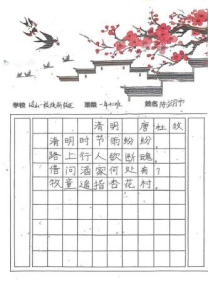 学校 班级 一年 班 姓名
清明 唐 杜牧
清明时节雨纷纷,
路上行人欲断魂。
借问酒家何处有?
牧童遥指杏花村。